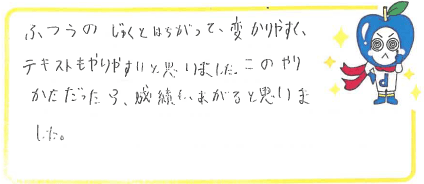 ふつうの じゅくとはちがって、変かりやすく、
テキストもやりやすいと思いました。このやり
かただったら、成績も、あがると思いま
した。